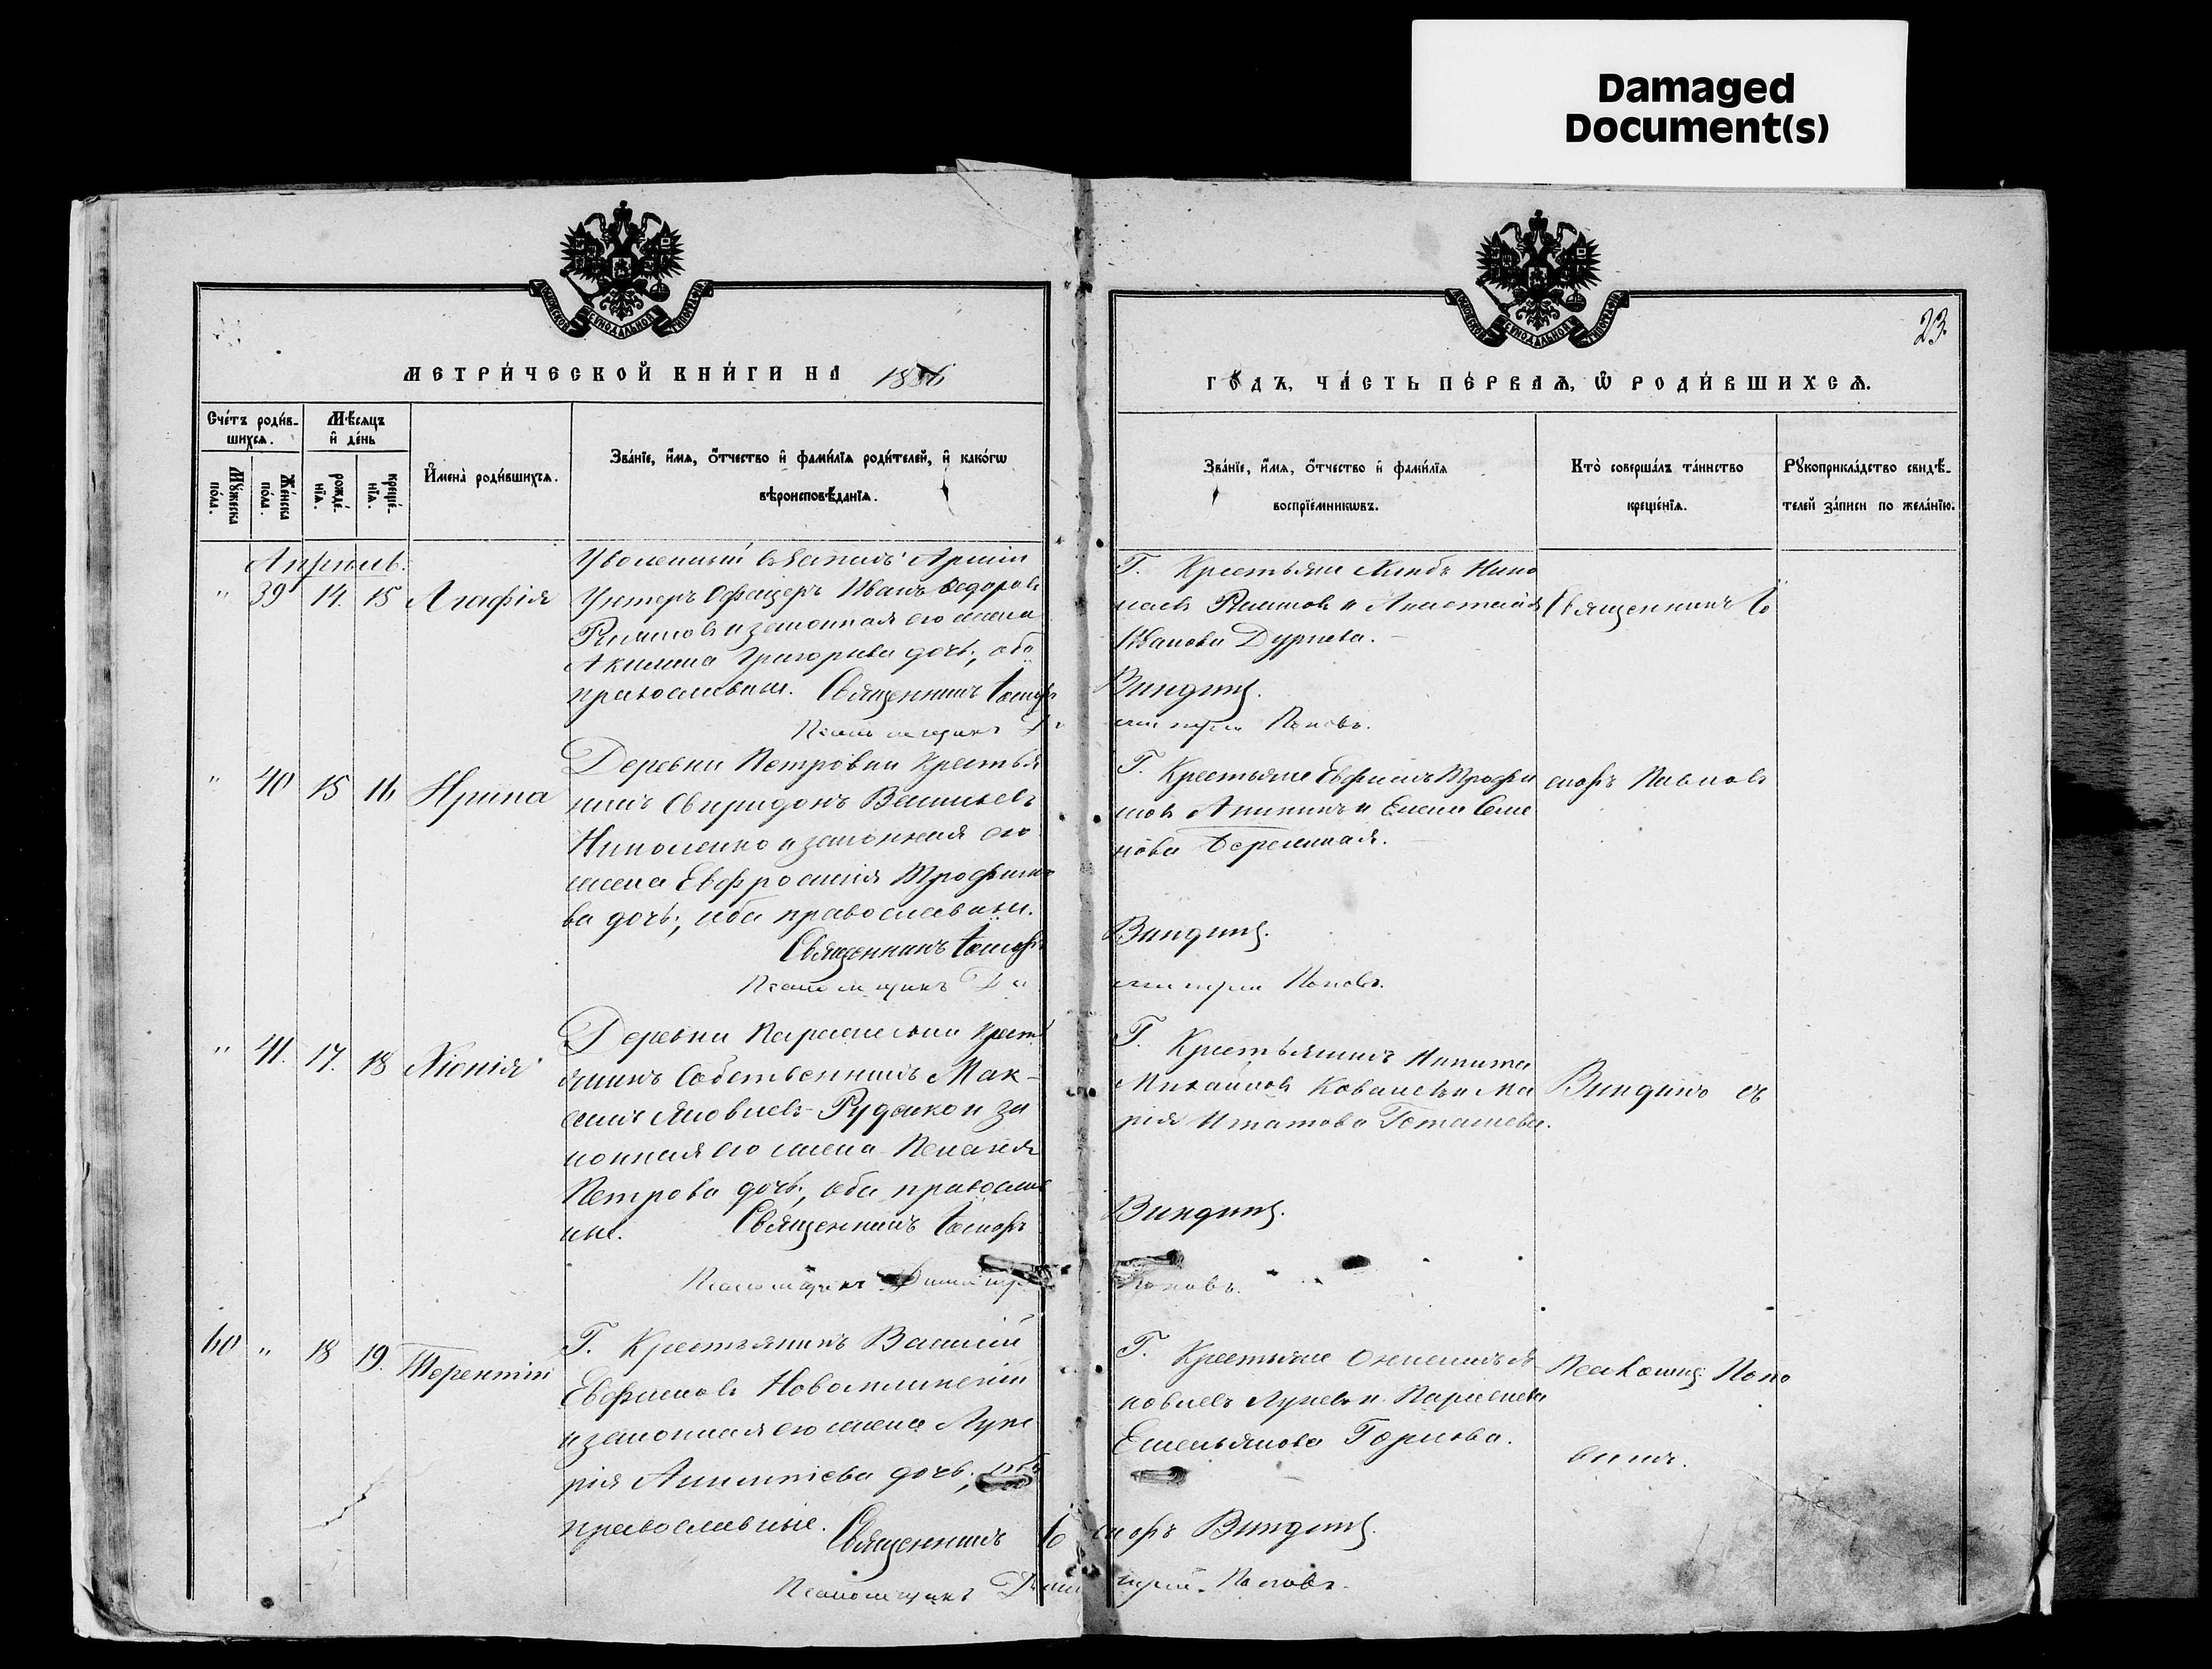 Damaged
Document(s)
МОСКОВСКОЙ СѴНОДАЛЬНОЙ ТИПОГРАФІИ
МОСКОВСКОЙ СѴНОДАЛЬНОЙ ТИПОГРАФІИ
23.
МЕТРИ́ЧЕСКОЙ КНИ́ГИ НА 1886
ГО́ДЪ, ЧА́СТЬ ПЕ́РВАѦ, Ѽ РОДИ́ВШИХСѦ.
Сче́тъ роди́в-
шихсѧ.
Мꙋ́жеска по́ла.
Же́нска по́ла.
Мѣ́сѧцъ
и҆ де́нь
рожде́-
нїѧ.
креще́-
нїѧ.
И҆мена̀ роди́вшихсѧ.
Зва́нїе, и҆́мѧ, ѻ҆́тчество и҆ фами́лїѧ роди́телей, и҆ како́гѡ
вѣроисповѣ́данїѧ.
Зва́нїе, и҆́мѧ, ѻ҆́тчество и҆ фами́лїѧ
воспрїе́мникѡвъ.
Кто̀ соверша́лъ та́инство
креще́нїѧ.
Рꙋкоприкла́дство свидѣ́-
телей за́писи по жела́нїю.
Апрѣль.
" 39 14. 15 Агафія
Уволенный въ запасъ Арміи
Унтеръ Офицеръ Иванъ Ѳедоровъ
и законная его жена
Акилина Григорьева дочь, оба
православные. Священникъ Іосифъ
Псаломщикъ Ди
Г. Крестьяне Глѣбъ Нико
лаевъ и Анастасія
Иванова Дурнева.
Виндинъ.
митрій Поповъ.
Священникъ Іо
" 40 15 16 Ирина
Деревни Петровки Крестья
нинъ Свиридонъ Васильевъ
Николенко и законная его
жена Евфросинія Трофимо
ва дочь, оба православные.
Священникъ Іосифъ
Псаломщикъ Ди
Г. Крестьяне Евфимъ Трофи
мовъ Аникинъ и Елена Семе
нова
Виндинъ.
митрій Поповъ.
сифъ Павловъ
" 41. 17. 18 Хіонія
Деревни Крестъ
янинъ Собственникъ Мак-
симъ Яковлевъ Рудько и за
конная его жена Пелагія
Петрова дочь, оба православ
ные. Священникъ Іосифъ
Псаломщикъ Димитрій
Г. Крестьянинъ Никита
Михайловъ Ковалевъ и Ма
рія Игнатова
Виндинъ.
Поповъ.
Виндинъ съ
60 " 18 19. Терентій
Г. Крестьянинъ Василій
Евфимовъ
и законная его жена Луке
рія дочь, оба
православные.
Священникъ Іо
Псаломщикъ Дими
Г. Крестьяне Я
ковлевъ Луневъ и Параскева
Емельянова Горлова.
сифъ Виндинъ.
митрій Поповъ.
Псаломщ: Попо
вымъ.